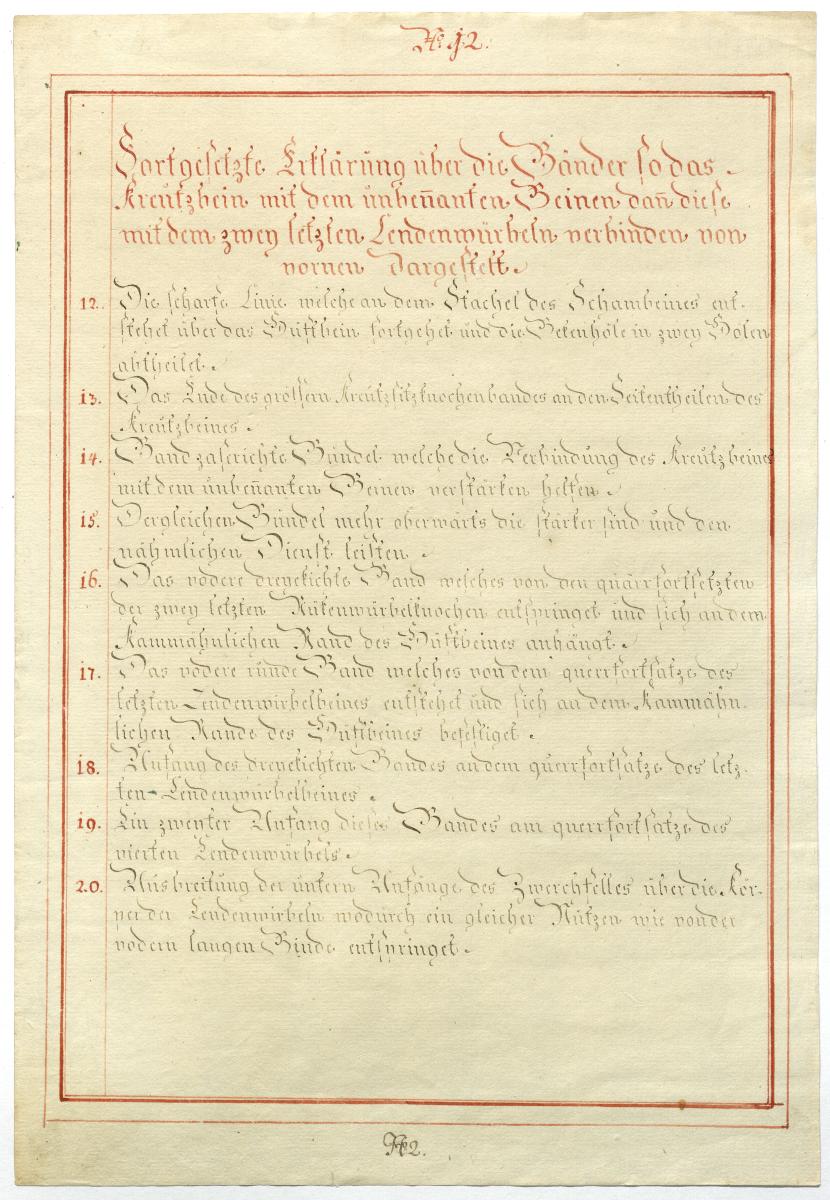 No. 12.
Fortgesetzte Erklärung über die Bänder so das
Kreutzbein mit dem unbeñanten Beinen dañ diese
mit dem zwey letzten Lendenwürbeln verbinden von
vornen Dargestelt.
12. Die scharfe Linie welche an dem Stachel des Schambeines ent-
stehet über das Hüftbein fortgehet und die Bekenhöle in zwey Holen
abtheilet.
13. Das Ende des grössern Kreutzsitzknochenbandes an den Seitentheilen des
Kreutzbeines.
14. Band zaserichte Bündel welche die Verbindung des Kreutzbeines
mit dem unbeñanten Beinen verstärken helfen.
15. Dergleichen Bündel mehr oberwärts die stärker sind und den
nähmlichen Dienst leisten.
16. Das vodere dreyekichte Band welches von den quärrfortsetzten
der zwey letzten Rükenwürbelknochen entspringet und sich an dem
Kammähnlichen Rand des Hüftbeines anhängt.
17. Das vodere runde Band welches von dem querrfortsatze des
letzten Lendenwirbelbeines entstehet und sich an dem Kammähn-
lichen Rande des Hüftbeines befestiget.
18. Anfang des dreyekichten Bandes an dem querrfortsatze des letz-
ten Lendenwürbelbeines.
19. Ein zweyter Anfang dieses Bandes am querrfortsatze des
vierten Lendenwürbels.
20. Ausbreitung der untern Anfänge des Zwerchfelles über die Kör-
per der Lendenwirbeln wodurch ein gleicher Nutzen wie von der
vodern langen Binde entspringet.
2.